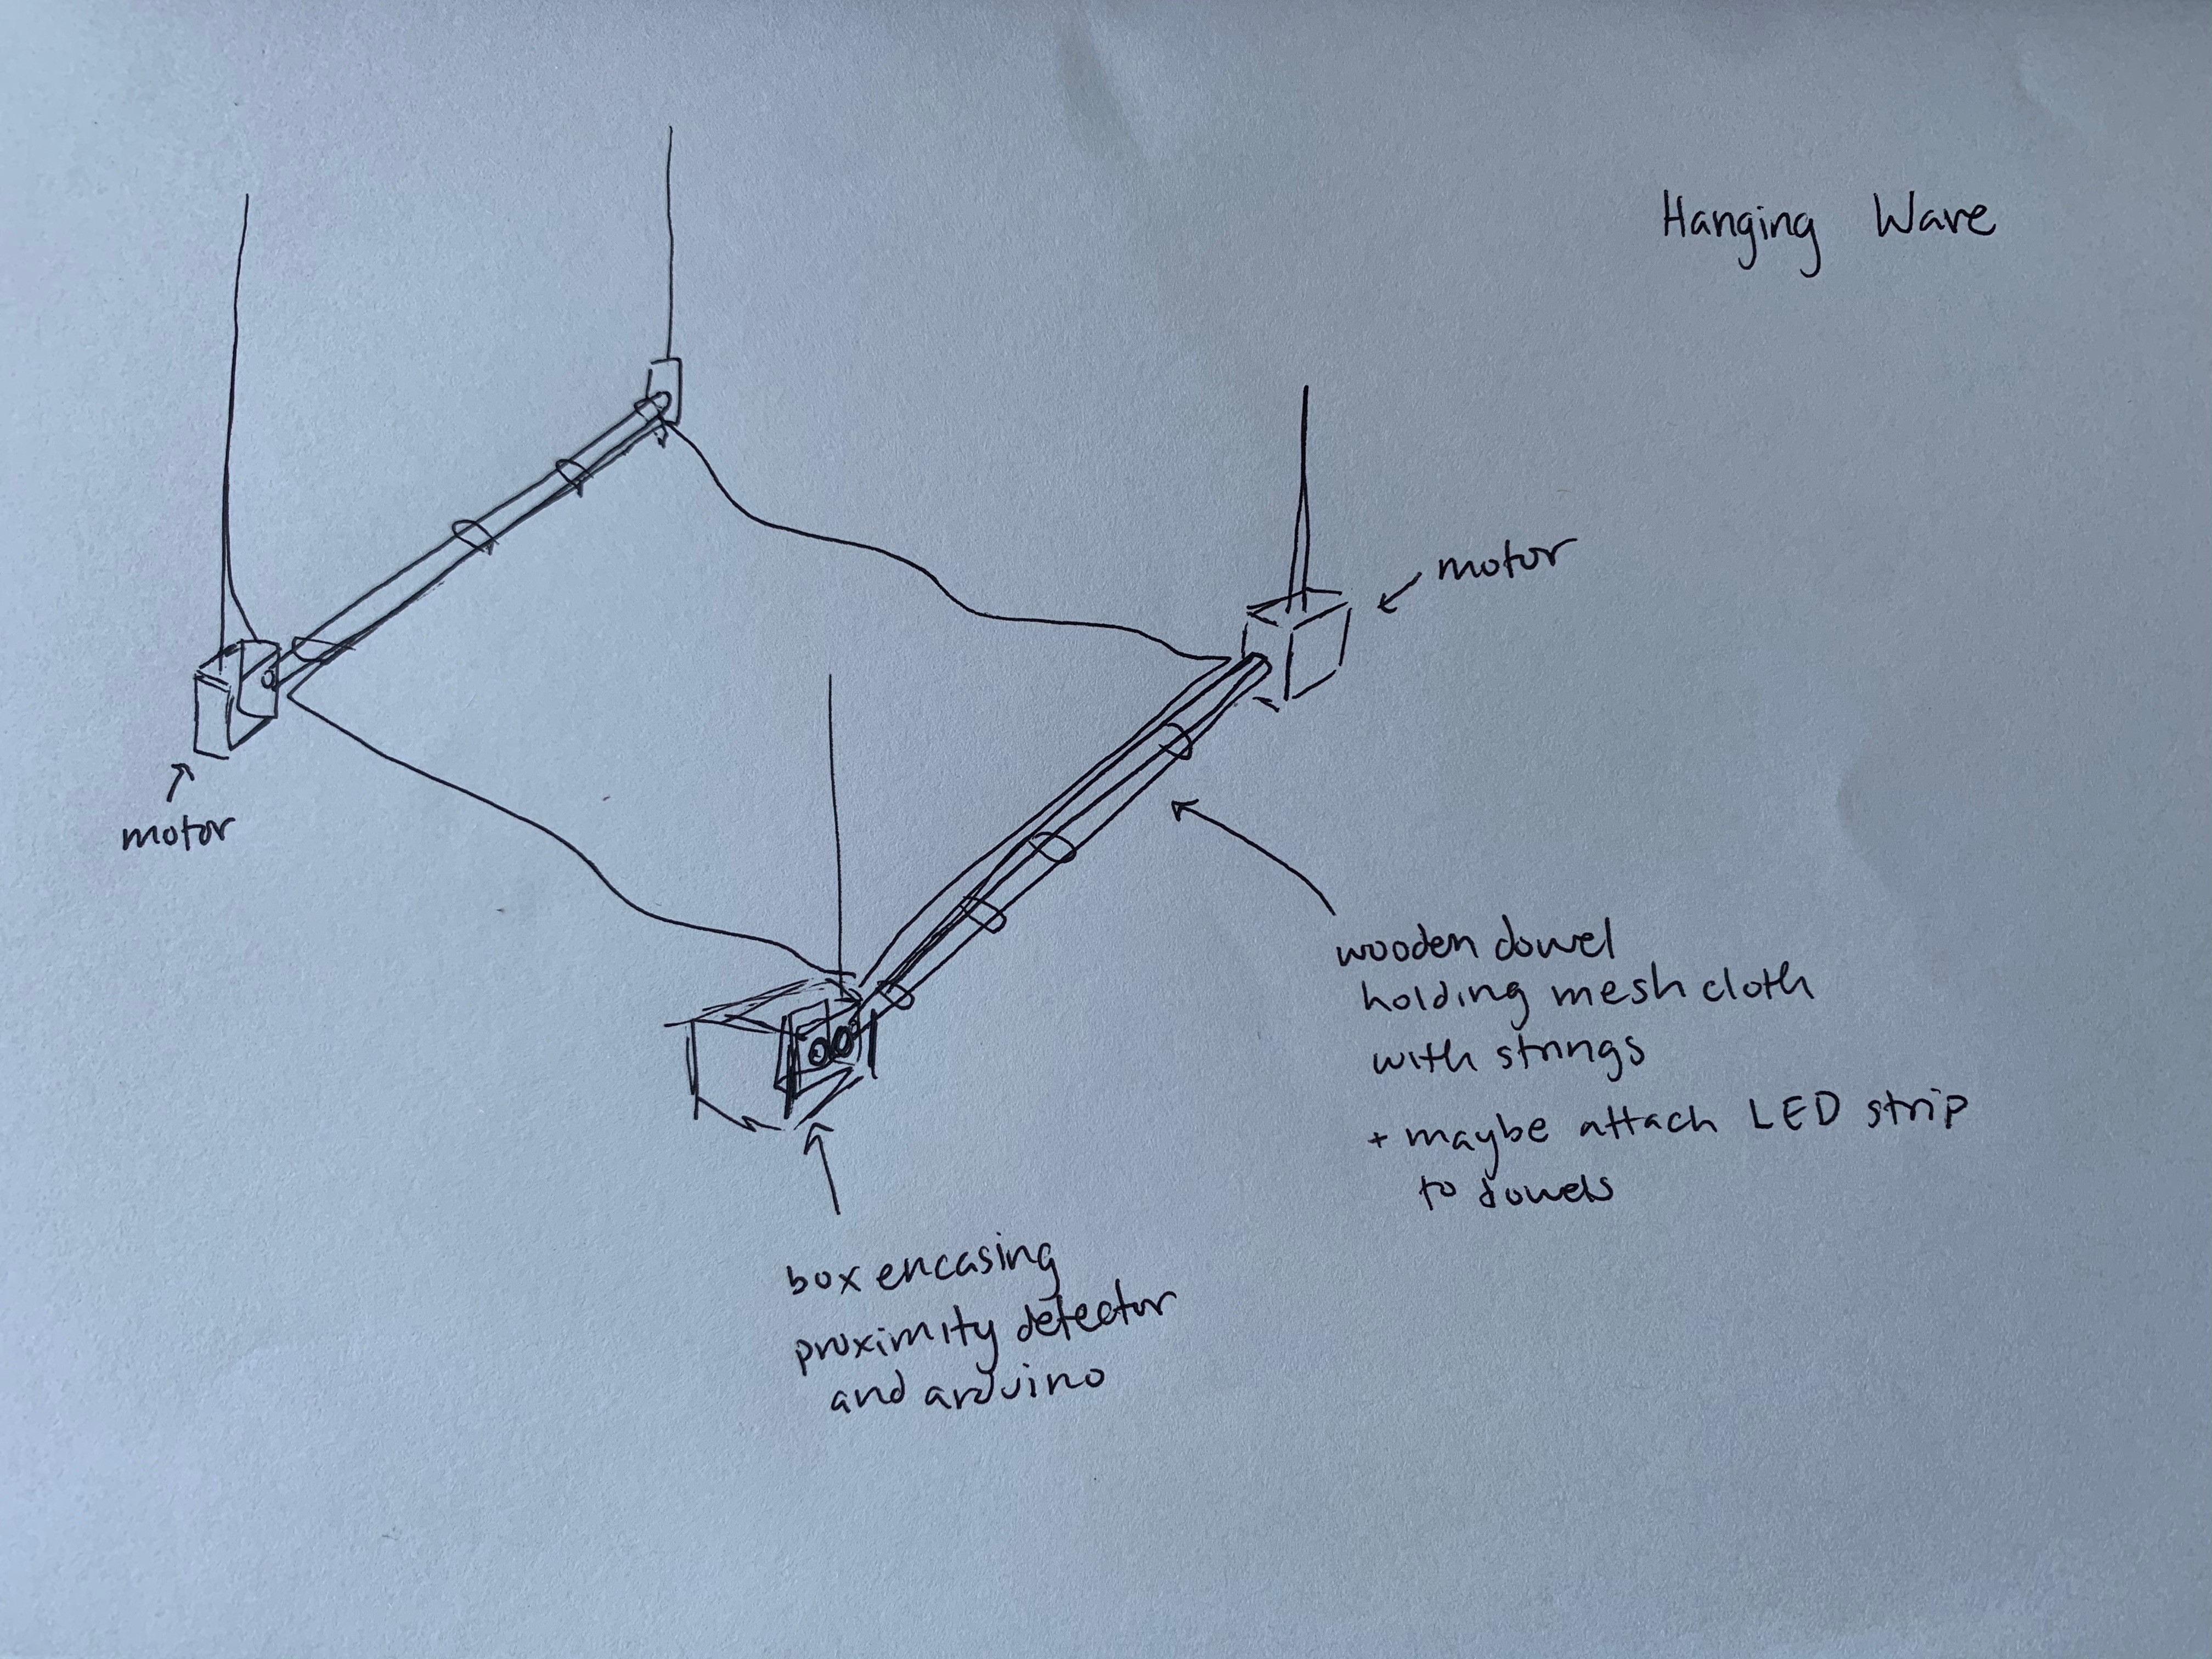 Hanging Wave
motor
motor
wooden dowel
holding mesh cloth
with strings
+ maybe attach LED strip
to dowels
box encasing
proximity detector
and arduino